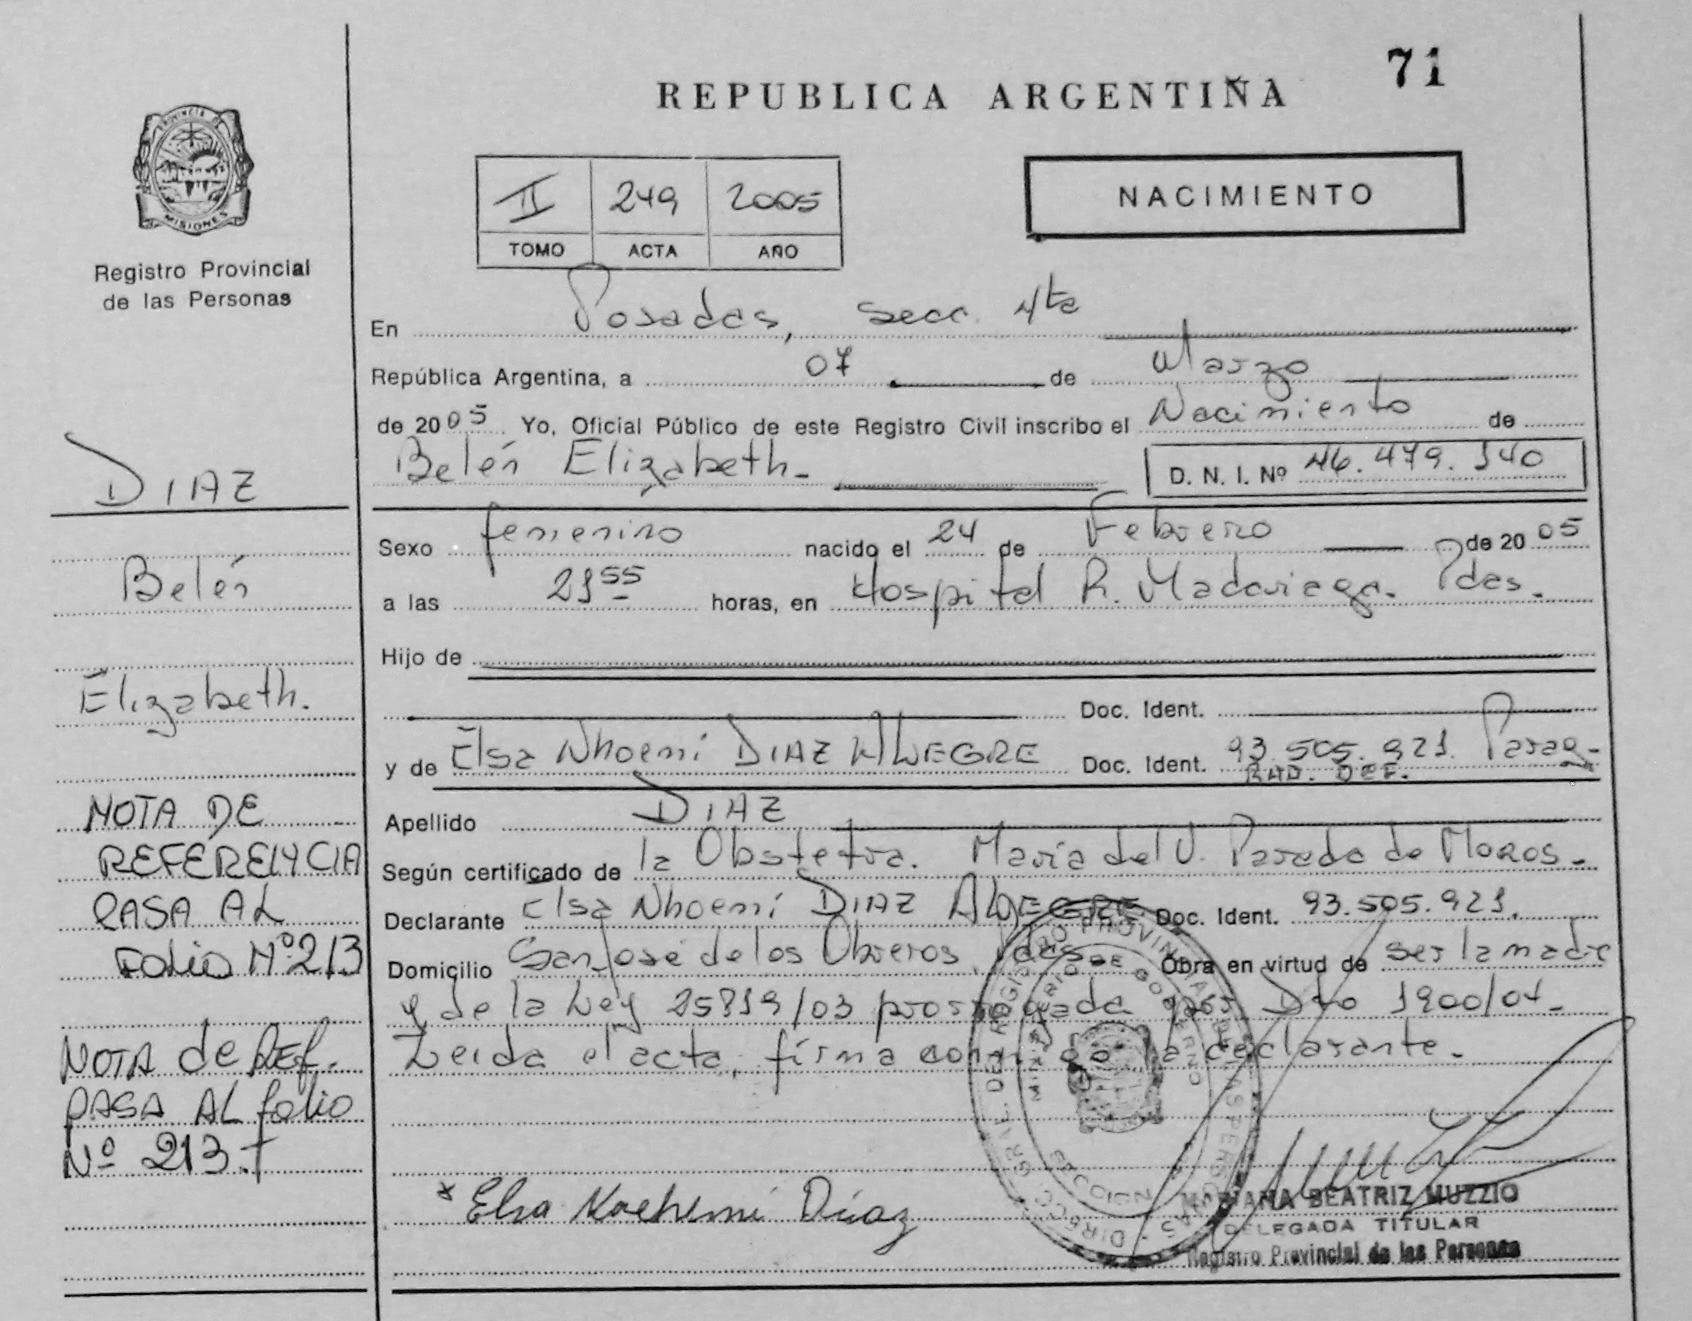 71
REPUBLICA ARGENTINA
PROVINCIA DE
MISIONES
Registro Provincial
de las Personas
II 249 2005
TOMO ACTA AÑO
NACIMIENTO
En Posadas, secc. 4ta
República Argentina, a 07 de Marzo
de 2005 Yo, Oficial Público de este Registro Civil inscribo el Nacimiento de
Belén Elizabeth.
D. N. I. Nº 46.479.140
Sexo femenino nacido el 24 de Febrero de 2005
a las 21 55 horas, en Hospital R. Madariaga. Pdas.
Hijo de
Doc. Ident.
y de Elsa Nhoemi DIAZ ALEGRE Doc. Ident. 93.505.921. Parag.
RAD. DEF.
Apellido DIAZ
Según certificado de la Obstetra. María del V. Parada de Moros.
Declarante Elsa Nhoemi DIAZ ALEGRE Doc. Ident. 93.505.921.
Domicilio San José de los Obreros, Pdas. Obra en virtud de ser la madre
y de la Ley 25819/03 prorrogada por Dto 1900/04.
Leida el acta, firma conmigo la declarante.
DIAZ
Belén
Elizabeth.
NOTA DE
REFERENCIA
PASA AL
FOLIO Nº 213
NOTA de REF.
PASA AL folio
Nº 213.
* Elsa Noehemi Díaz
MARIANA BEATRIZ MUZZIO
DELEGADA TITULAR
Registro Provincial de las Personas